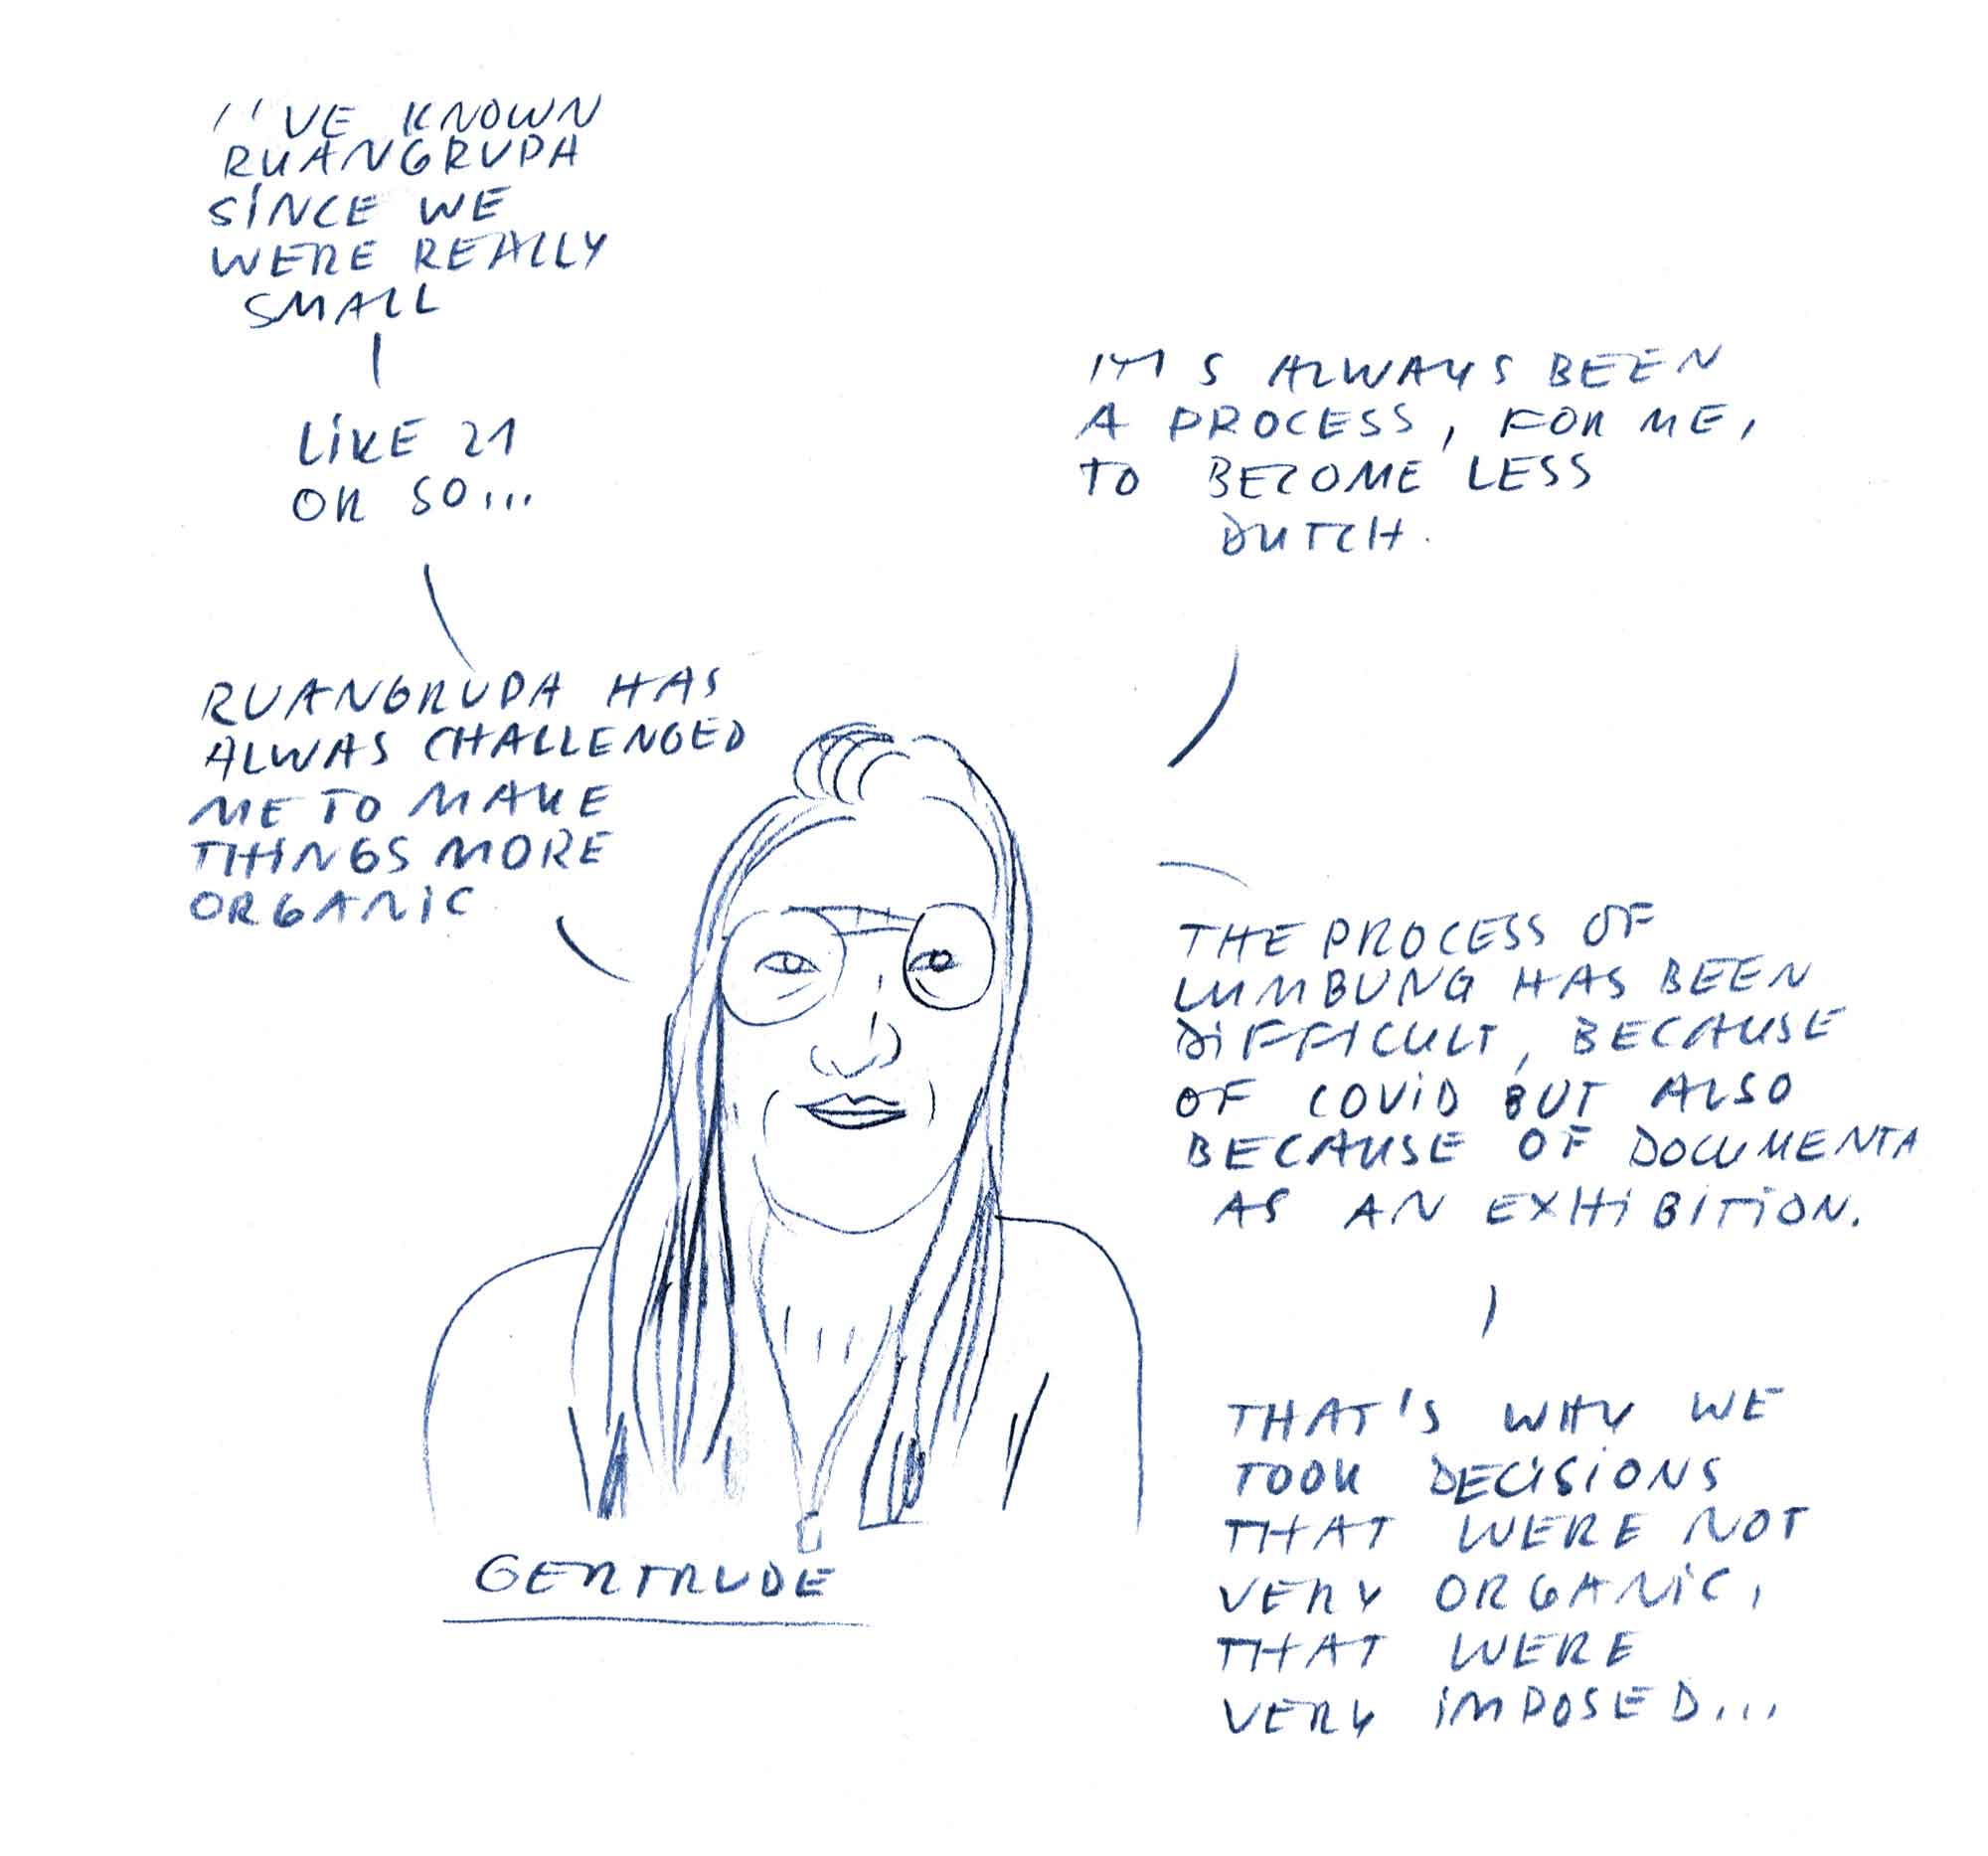 I'VE KNOWN
RUANGRUPA
SINCE WE
WERE REALLY
SMALL
LIKE 21
OR SO...
RUANGRUPA HAS
ALWAS CHALLENGED
ME TO MAKE
THINGS MORE
ORGANIC
IT'S ALWAYS BEEN
A PROCESS, FOR ME,
TO BECOME LESS
DUTCH.
THE PROCESS OF
LUMBUNG HAS BEEN
DIFFICULT, BECAUSE
OF COVID BUT ALSO
BECAUSE OF DOCUMENTA
AS AN EXHIBITION.
THAT'S WHY WE
TOOK DECISIONS
THAT WERE NOT
VERY ORGANIC,
THAT WERE
VERY IMPOSED...
GERTRUDE